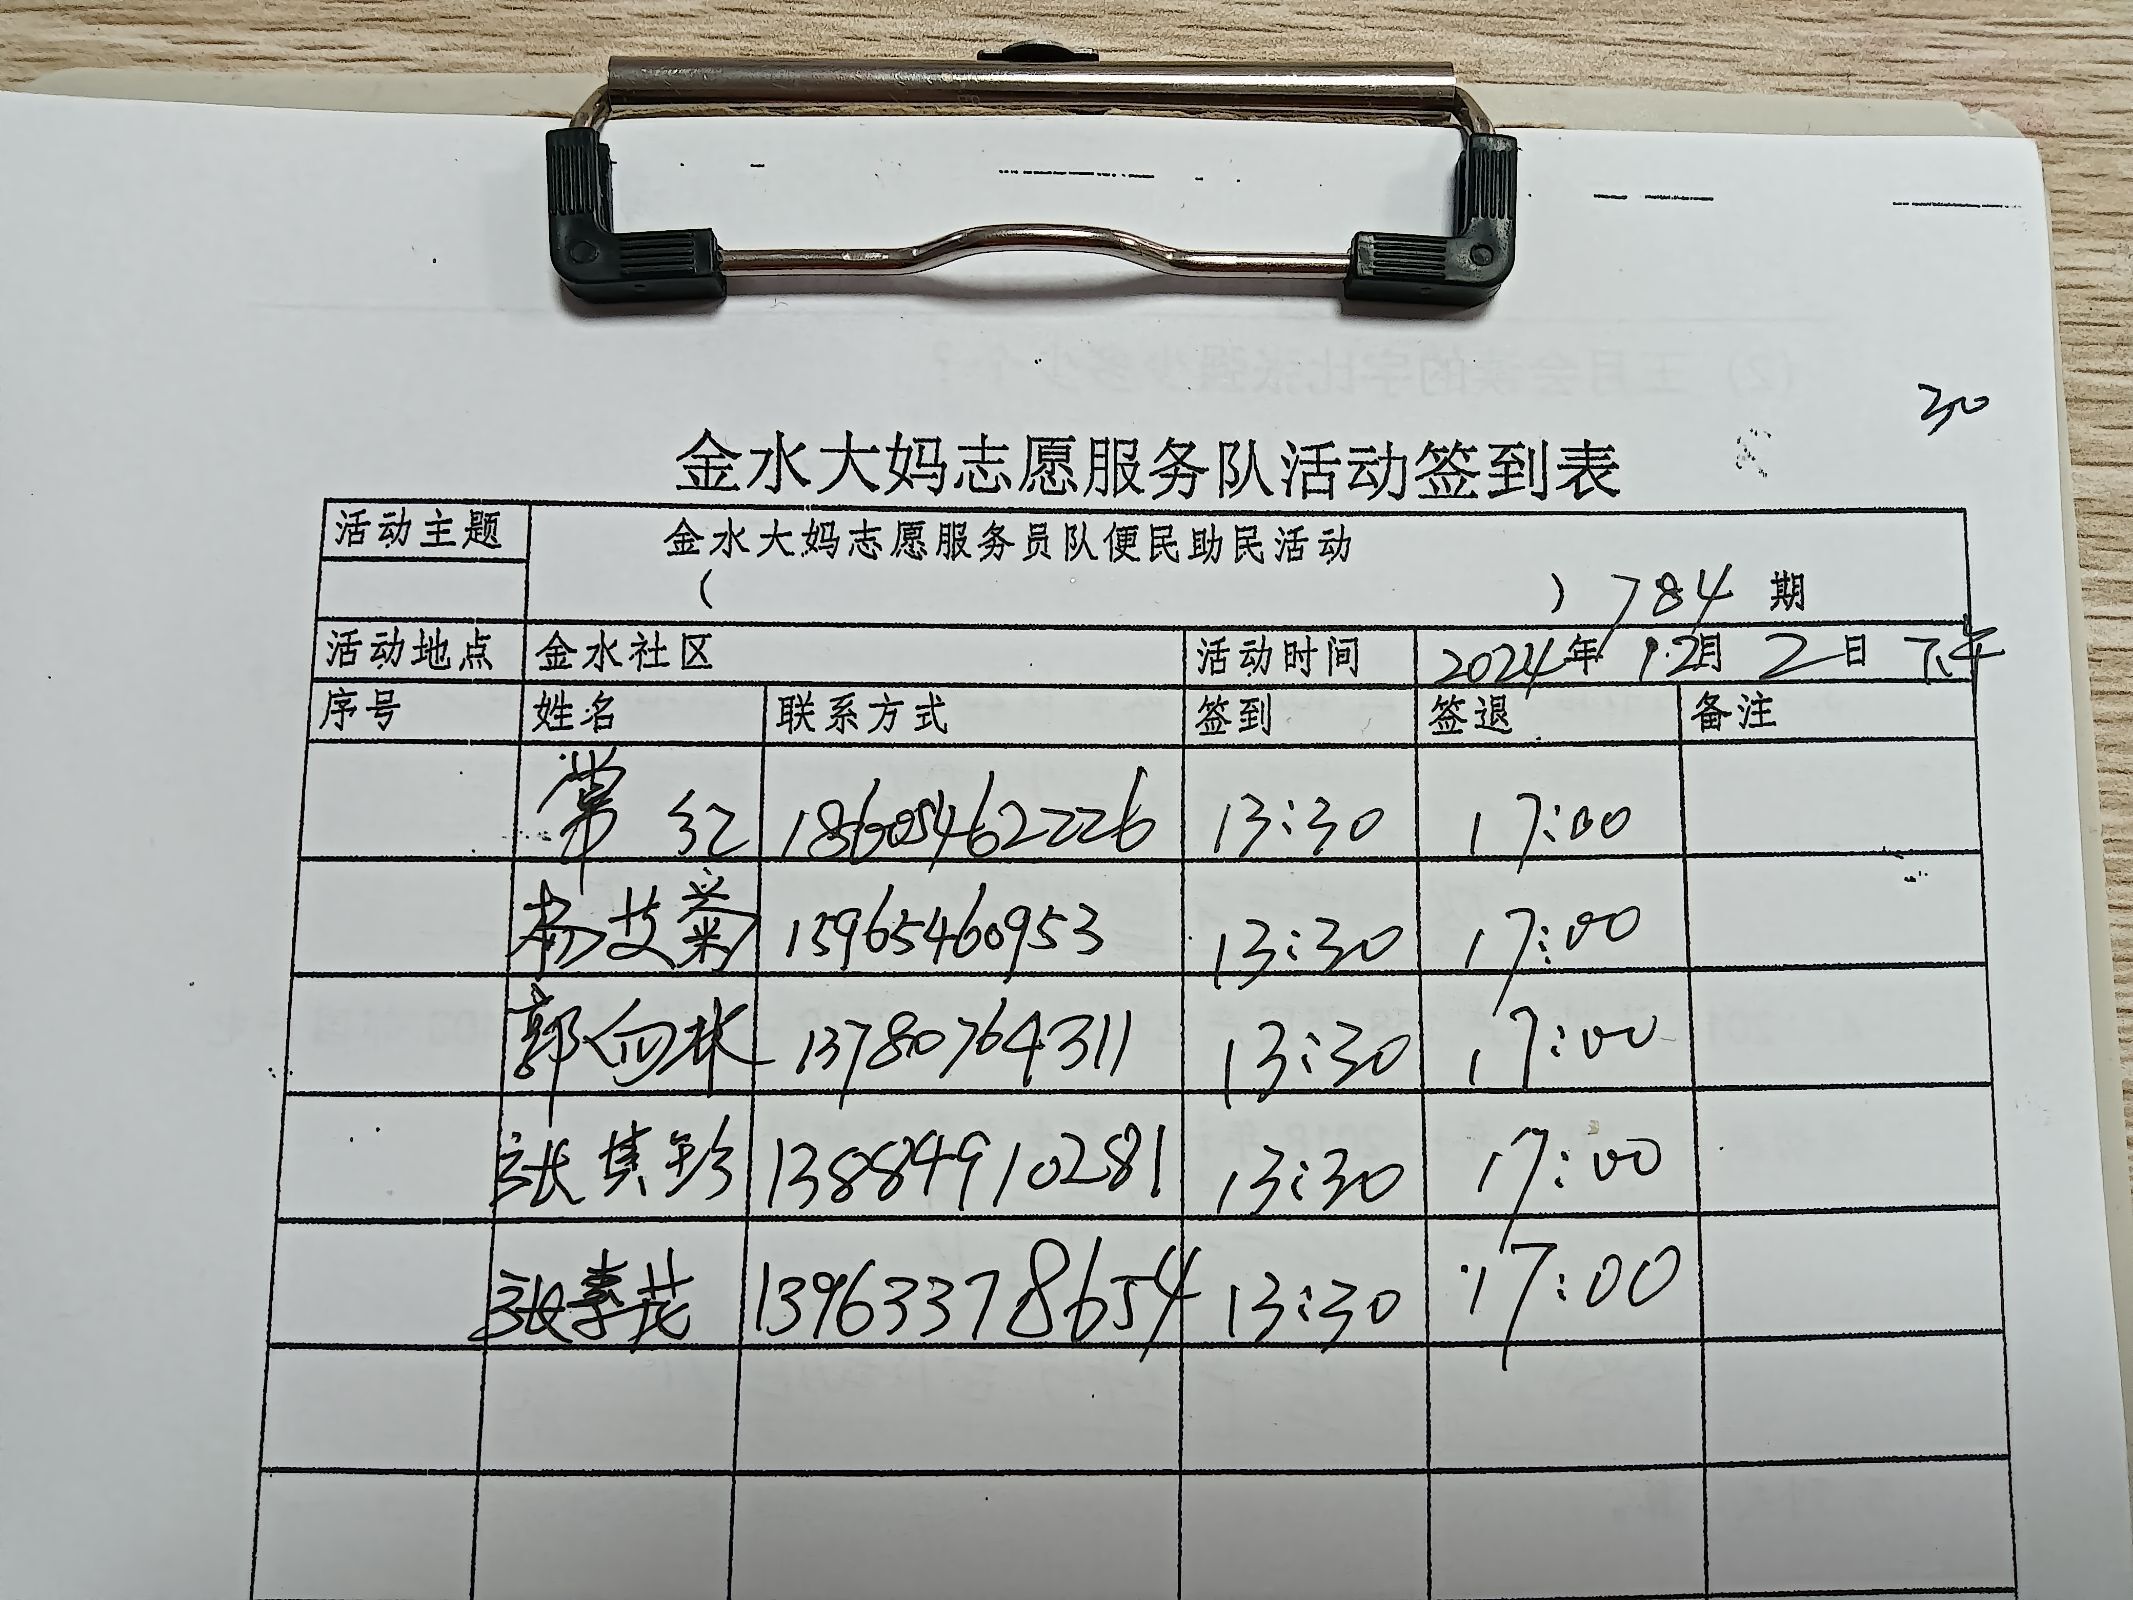 30
金水大妈志愿服务队活动签到表
活动主题 金水大妈志愿服务员队便民助民活动
( ) 784 期
活动地点 金水社区 活动时间 2024年 12月 2日 下午
序号 姓名 联系方式 签到 签退 备注
常红 18605462226 13:30 17:00
杨艾菊 15965460953 13:30 17:00
郭向林 13780764311 13:30 17:00
张其珍 13884910281 13:30 17:00
张素花 13963378654 13:30 17:00